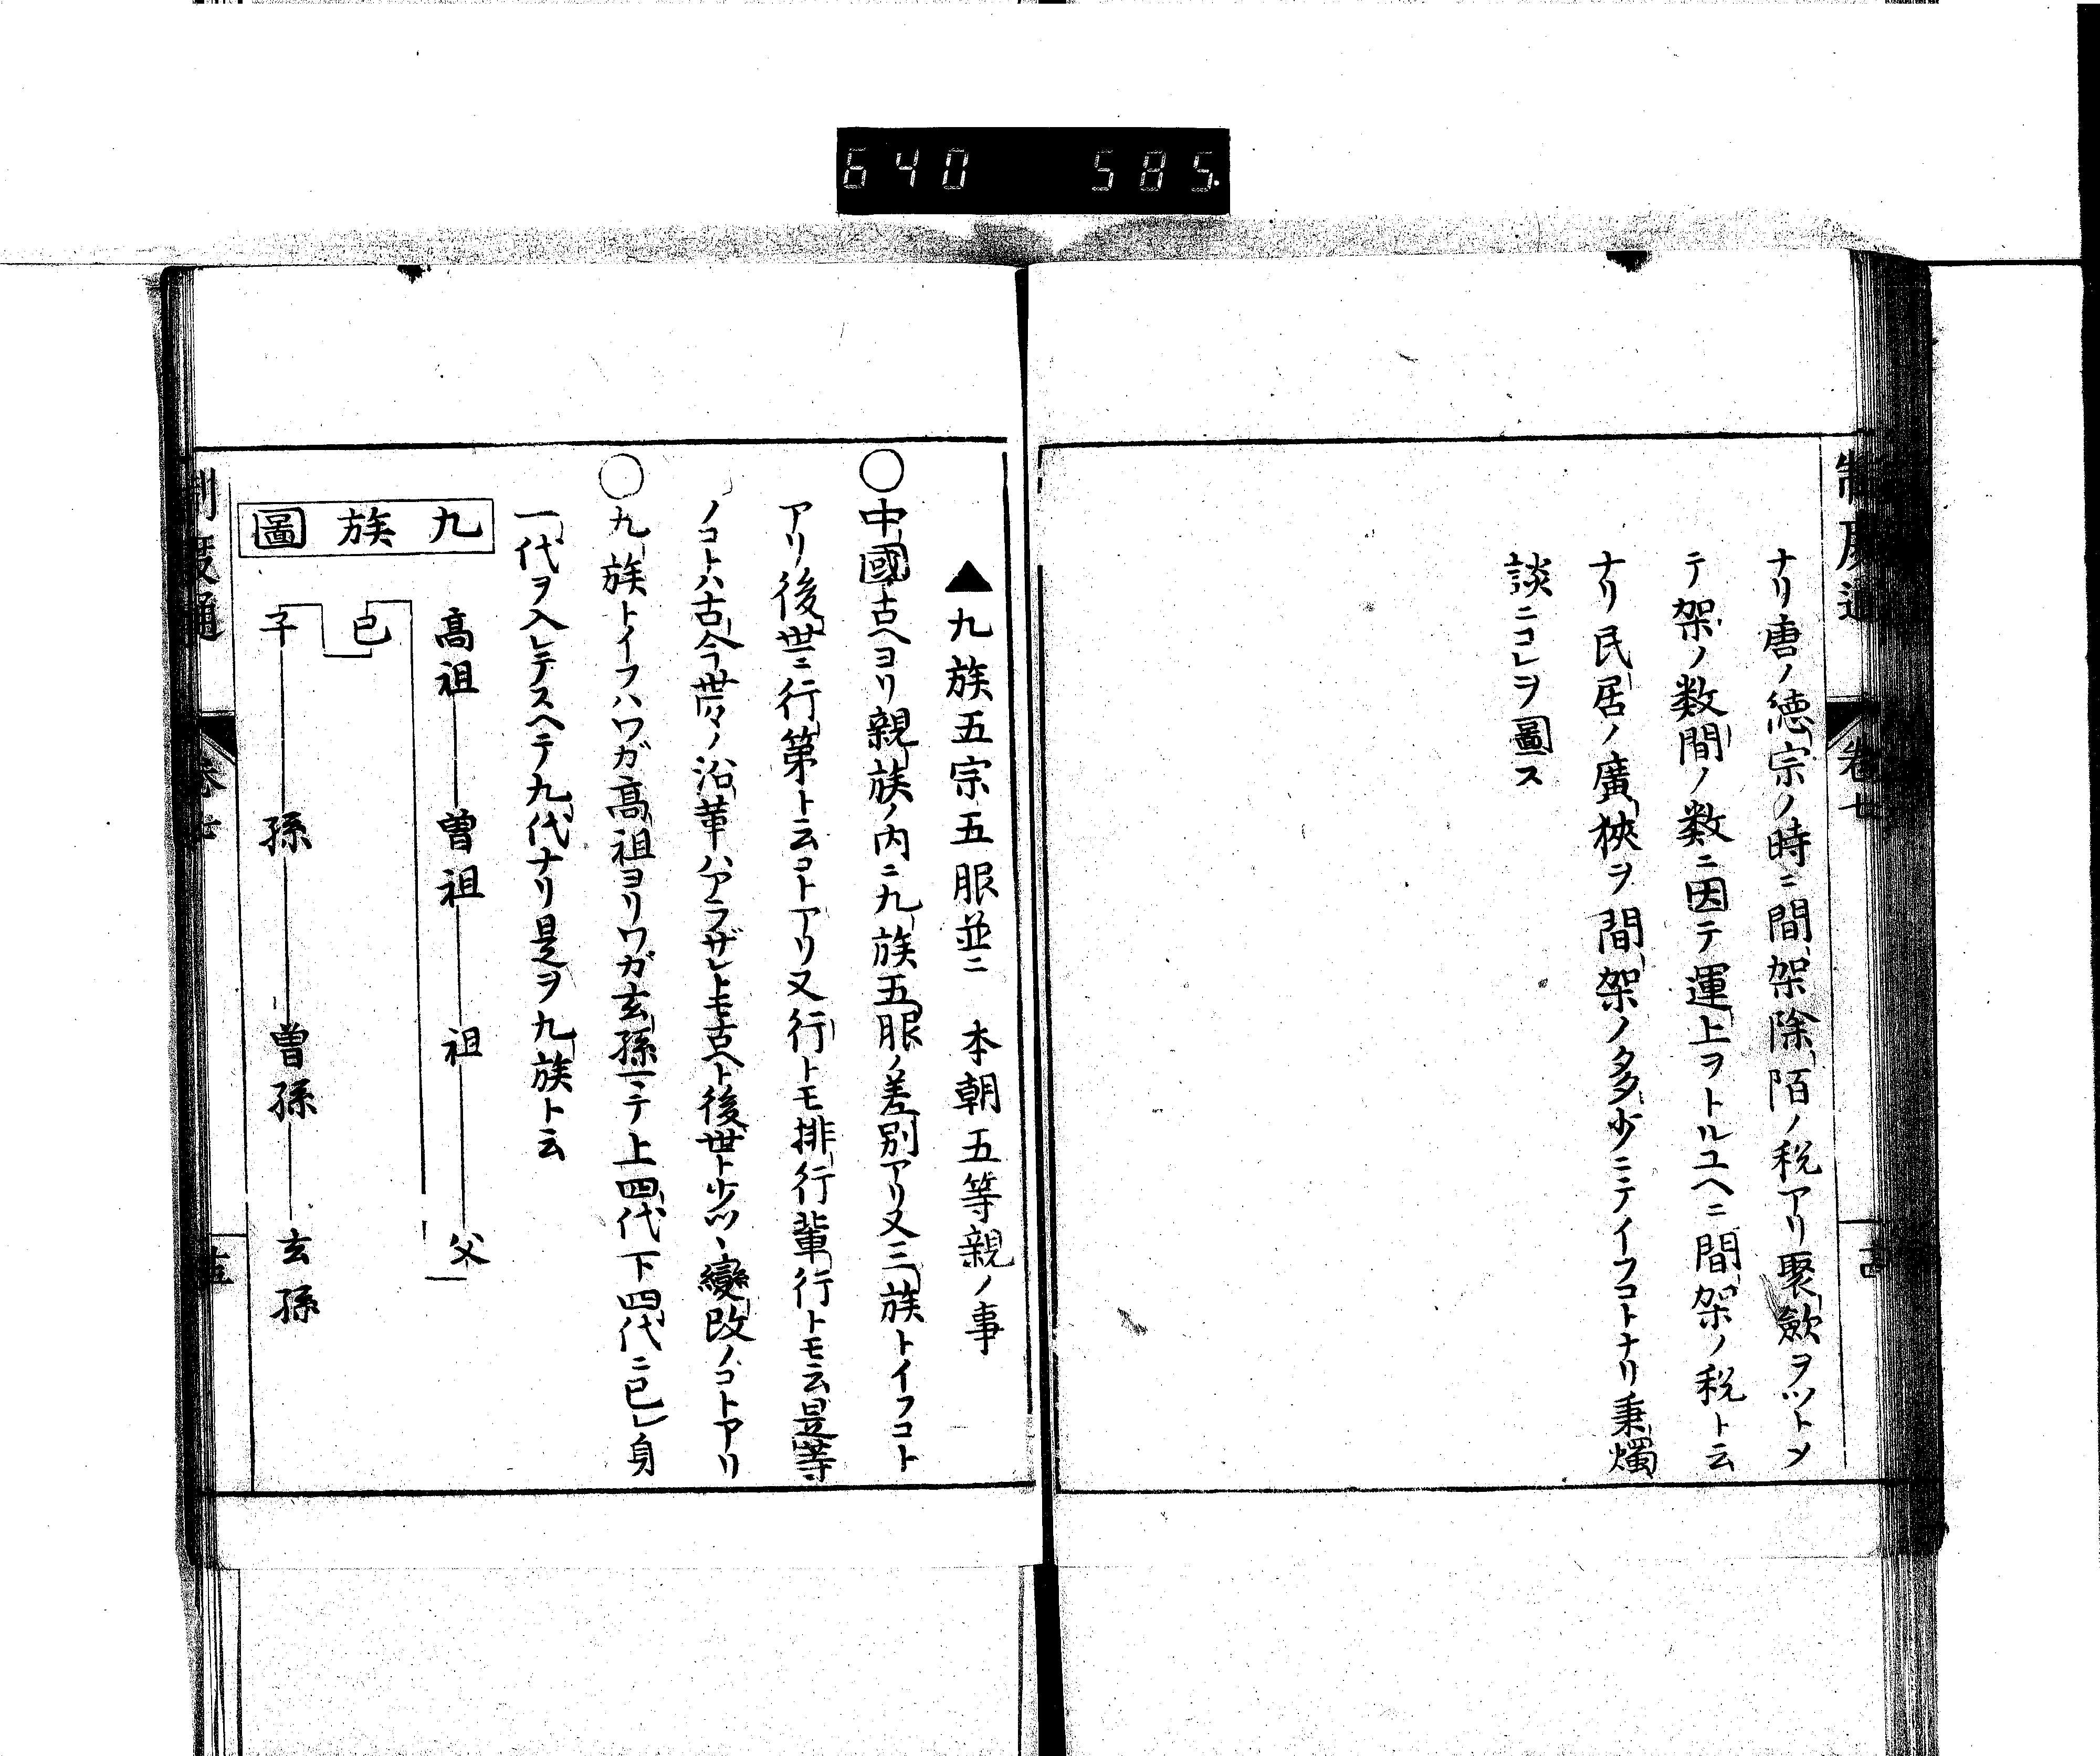 640 585.
制度通 卷七
ナリ唐ノ徳宗ノ時ニ間架除陌ノ税アリ聚歛ヲツトメ
テ架ノ数間ノ数ニ因テ運上ヲトルユヘニ間架ノ税ト云
ナリ民居ノ廣狹ヲ間架ノ多少ニテイフコトナリ秉燭
談ニコレヲ圖ス
▲九族五宗五服並ニ 本朝五等親ノ事
○中國古ヘヨリ親族ノ内ニ九族五服ノ差別アリ又三族トイフコト
アリ後世ニ行第ト云コトアリ又行トモ排行輩行トモ云是等
ノコトハ古今世々ノ沿革ハアラザレトモ古ヘト後世ト少ツヽ變改ノコトアリ
○九族トイフハワガ高祖ヨリワガ玄孫ニテ上四代下四代ニ已レ身
一代ヲ入レテスヘテ九代ナリ是ヲ九族ト云
九族圖
高祖 曽祖 祖 父
已
子 孫 曽孫 玄孫
制度通 卷七